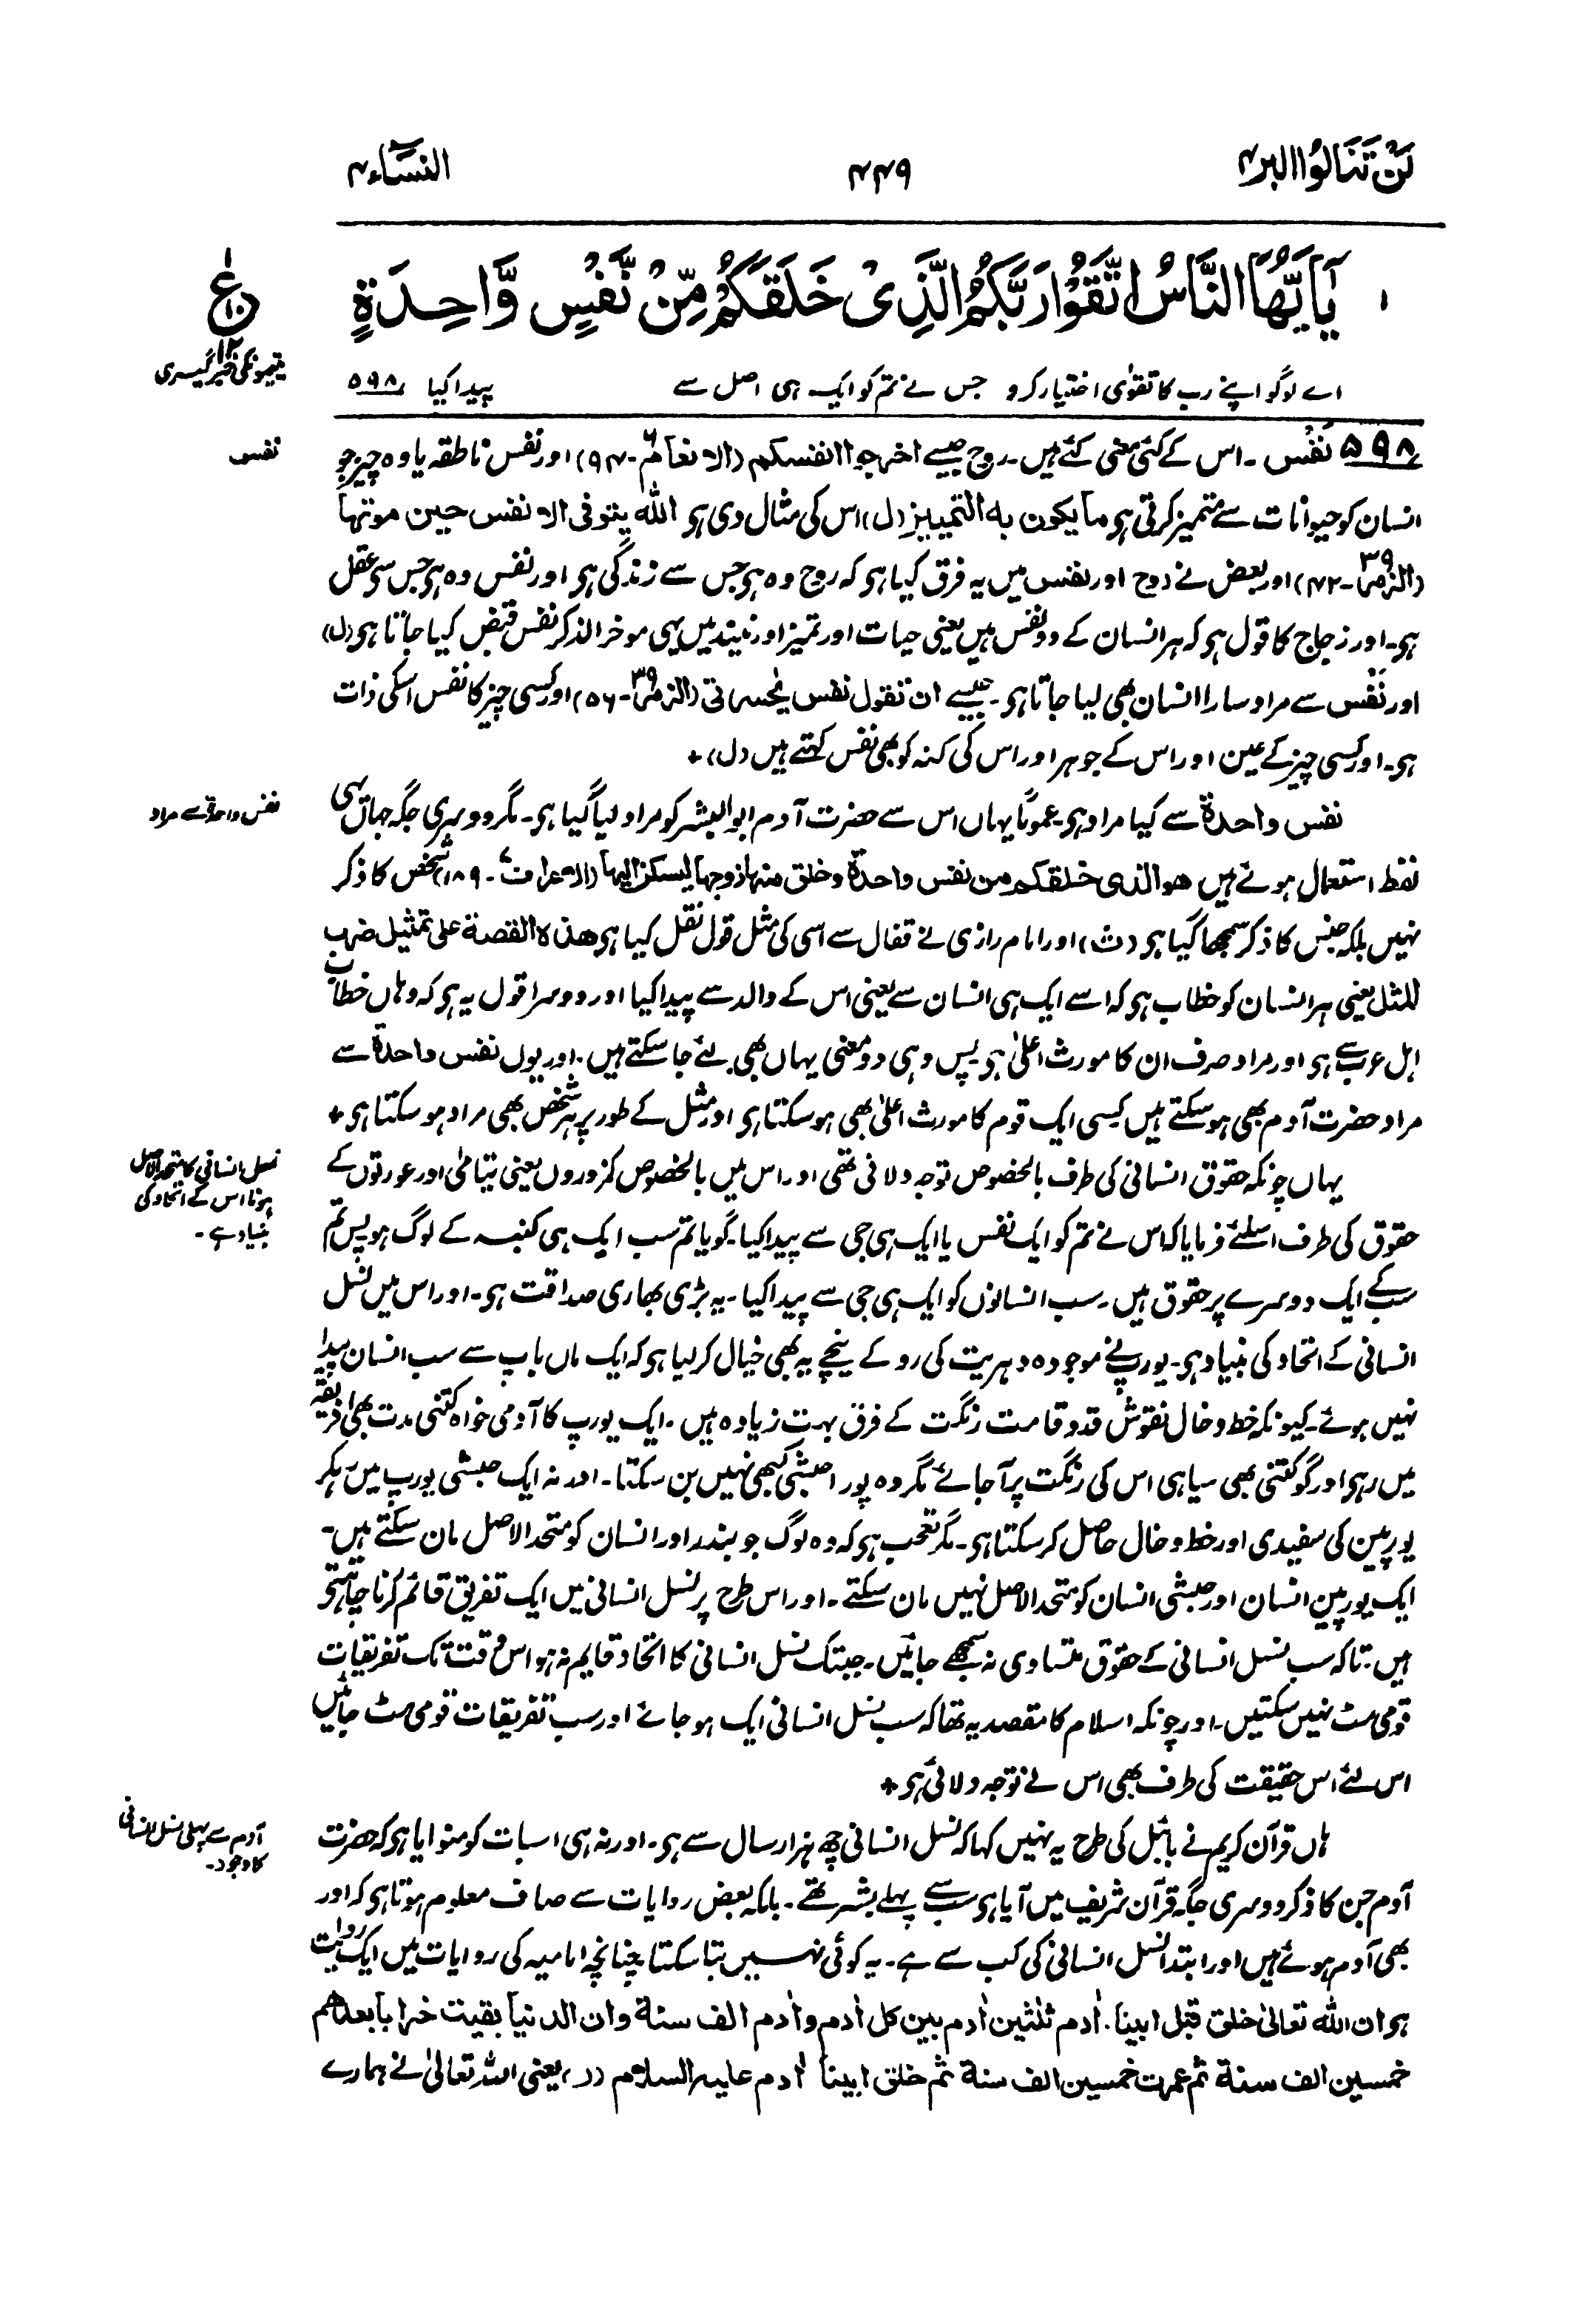 لن تنالوا البر ۴
۴۴۹
النساء ۴
۱ يَآيُّهَا النَّاسُ اتَّقُوْا رَبَّكُمُ الَّذِىْ خَلَقَكُمْ مِّنْ نَّفْسٍ وَّاحِدَةٍ
ع
۱۲
یتیمونکی خبرگیری
اے لوگو اپنے رب کا تقوٰی اختیار کرو جس نے تم کو ایک ہی اصل سے پیدا کیا ۵۹۸
۵۹۸ نَفْس ۔ اس کے کئی معنی کئے ہیں۔ روح جیسے اخرجوا انفسکم (الانعام ۶-۹۴) اور نفس ناطقہ یا وہ چیز جو
نفس
انسان کو حیوانات سے متمیز کرتی ہو ما یکون به التمییز (ل) اس کی مثال دی ہو الله یتوفی الانفس حین موتها
(الزمر ۳۹-۴۲) اور بعض نے روح اور نفس میں یہ فرق کیا ہو کہ روح وہ ہو جس سے زندگی ہو اور نفس وہ ہو جس سی عقل
ہو۔ اور زجاج کا قول ہو کہ ہر انسان کے دو نفس ہیں یعنی حیات اور تمیز اور نیند میں یہی موخر الذکر نفس قبض کیا جاتا ہو (ل)
اور نَفْس سے مراد سارا انسان بھی لیا جاتا ہو۔ جیسے ان تقول نفس یٰحسرتی (الزمر ۳۹-۵۶) اور کسی چیز کا نفس اسکی ذات
ہو۔ اور کسی چیز کے عین اور اس کے جوہر اور اس کی کنہ کو بھی نفس کہتے ہیں (ل) +
نفس واحدة سے کیا مراد ہو۔ عموماً یہاں اس سے حضرت آدم ابوالبشر کو مراد لیا گیا ہو۔ مگر دوسری جگہ جہاں یہی
نفس واحدة سے مراد
لفظ استعمال ہوئے ہیں هو الذی خلقکم من نفس واحدة وخلق منها زوجها لیسکن الیها (الاعراف ۷-۱۸۹) شخص کا ذکر
نہیں بلکہ جنس کا ذکر سمجھا گیا ہو (ث) اور امام رازی نے قفال سے اسی کی مثل قول نقل کیا ہو هذه القصة علی تمثیل ضرب
للمثل یعنی ہر انسان کو خطاب ہو کہ اسے ایک ہی انسان سے یعنی اس کے والد سے پیدا کیا اور دوسرا قول یہ ہو کہ وہاں خطاب
اہل عرب سے ہو اور مراد صرف ان کا مورث اعلیٰ ہو پس وہی دو معنی یہاں بھی لئے جا سکتے ہیں۔ اور یوں نفس واحدة سے
مراد حضرت آدم بھی ہو سکتے ہیں کسی ایک قوم کا مورث اعلیٰ بھی ہو سکتا ہو اور مثل کے طور پر ہر شخص بھی مراد ہو سکتا ہو +
یہاں چونکہ حقوق انسانی کی طرف بالخصوص توجہ دلانی تھی اور اس میں بالخصوص کمزوروں یعنی یتامیٰ اور عورتوں کے
نسل انسانی کا متحد الاصل
ہونا اس کے اتحاد کی
بنیاد ہے ۔
حقوق کی طرف اسلئے فرمایا کہ اس نے تم کو ایک نفس یا ایک ہی جی سے پیدا کیا۔ گویا تم سب ایک ہی کنبہ کے لوگ ہو پس تم
سب کے ایک دوسرے پر حقوق ہیں۔ سب انسانوں کو ایک ہی جی سے پیدا کیا۔ یہ بڑی بھاری صداقت ہو۔ اور اس میں نسل
انسانی کے اتحاد کی بنیاد ہو۔ یورپ نے موجودہ دہریت کی رو کے نیچے یہ بھی خیال کر لیا ہو کہ ایک ماں باپ سے سب انسان پیدا
نہیں ہوئے۔ کیونکہ خط و خال نقوش قد و قامت رنگت کے فرق بہت زیادہ ہیں۔ ایک یورپ کا آدمی خواہ کتنی مدت بھی افریقہ
میں رہو اور گو کتنی بھی سیاہی اس کی رنگت پر آ جائے مگر وہ پورا حبشی کبھی نہیں بن سکتا۔ اور نہ ایک حبشی یورپ میں رہکر
یورپین کی سفیدی اور خط و خال حاصل کر سکتا ہو۔ مگر تعجب ہو کہ وہ لوگ جو بندر اور انسان کو متحد الاصل مان سکتے ہیں۔
ایک یورپین انسان اور حبشی انسان کو متحد الاصل نہیں مان سکتے۔ اور اس طرح پر نسل انسانی میں ایک تفریق قائم کرنا چاہتے
ہیں۔ تاکہ سب نسل انسانی کے حقوق متساوی نہ سمجھے جائیں۔ جبتک نسل انسانی کا اتحاد قایم نہ ہو اس وقت تک تفریقات
قومی مٹ نہیں سکتیں۔ اور چونکہ اسلام کا مقصد یہ تھا کہ سب نسل انسانی ایک ہو جائے اور سب تفریقات قومی مٹ جائیں
اس لئے اس حقیقت کی طرف بھی اس نے توجہ دلائی ہو +
ہاں قرآن کریم نے بائبل کی طرح یہ نہیں کہا کہ نسل انسانی چھ ہزار سال سے ہو۔ اور نہ ہی اسبات کو منوایا ہو کہ حضرت
آدم سے پہلی نسل انسانی
کا وجود۔
آدم جن کا ذکر دوسری جگہ قرآن شریف میں آیا ہو سب سے پہلے بشر تھے۔ بلکہ بعض روایات سے صاف معلوم ہوتا ہو کہ اور
بھی آدم ہوئے ہیں اور ابتدا نسل انسانی کی کب سے ہے۔ یہ کوئی نہیں بتا سکتا چنانچہ امامیہ کی روایات میں ایک روایت
ہو ان الله تعالیٰ خلق قبل ابینا اٰدم ثلٰثین اٰدم بین کل اٰدم واٰدم الف سنة وان الدنیا بقیت خرابا بعدهم
خمسین الف سنة ثم عمرت خمسین الف سنة ثم خلق ابینا اٰدم علیه السلام (ر) یعنی اللہ تعالیٰ نے ہمارے